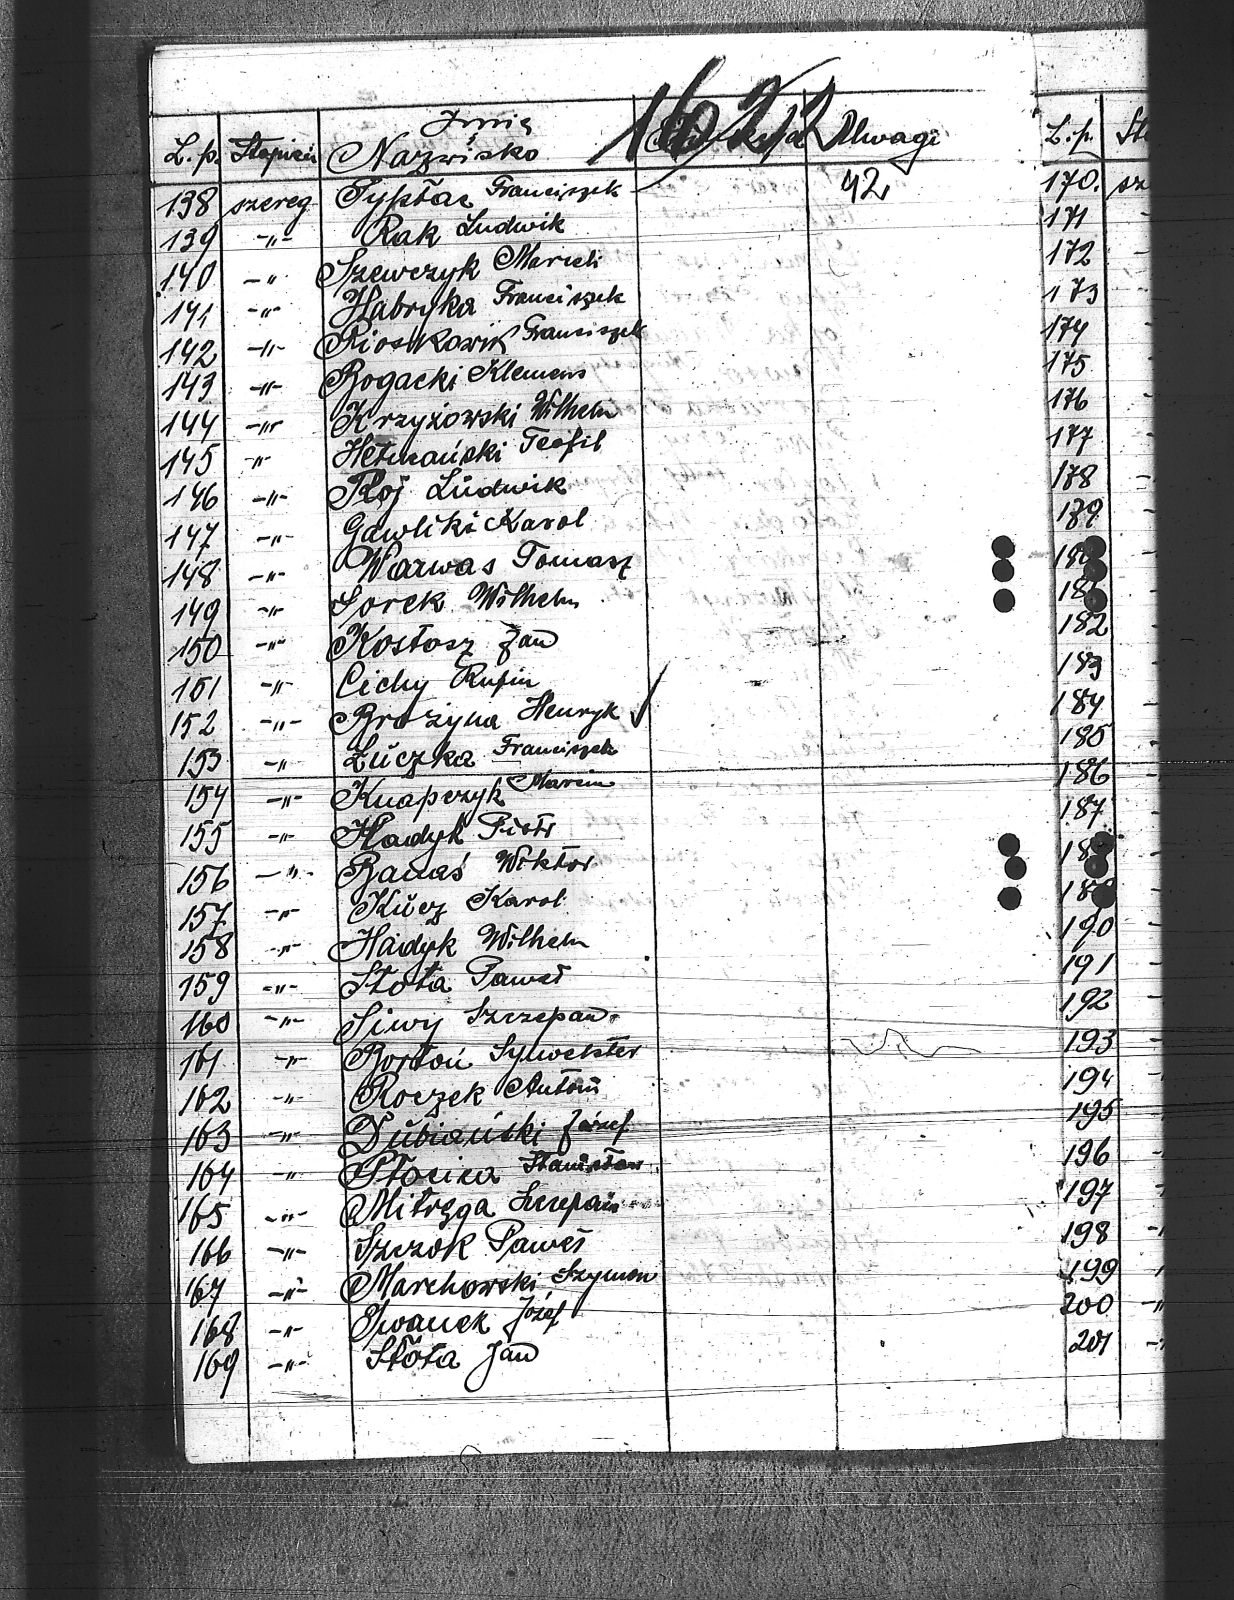 1622
L.p. Stopień Imię Nazwisko Uwagi L.p. Sto
42
138 szereg Tyrtac Franciszek
139 -"- Rak Ludwik
140 -" Szewczyk
141 -"- Habryka Franciszek
142 -"- Franciszek
143 -"- Bogacki Klemens
144 -"- Krzyżowski Wilhelm
145 -"- Hetmański Teofil
146 -"- Ludwik
147 -"- Gawlik Karol
148 -"- Warwas Tomasz
149 -"- Sorek Wilhelm
150 -"- Kostosz Jan
151 -"- Cichy Rufin
152 -"- Brożyna Henryk
153 -"- Łuczka Franciszek
154 -"- Knapczyk Marcin
155 -"- Hadyk Piotr
156 -"- Banaś Wiktor
157 -"- Kucz Karol
158 -"- Hadyk Wilhelm
159 -"- Stota Paweł
160 -"- Siwy Szczepan
161 -"- Bortoń Sylwester
162 -"- Roczek Antoni
163 -"- Dubiański Józef
164 -"- Stanisław
165 -"- Mitręga Szczepan
166 -"- Szczok Paweł
167 -"- Marchowski Szymon
168 -"- Iwanek Józef
169 -"- Stota Jan
170. sz
171
172
173
174
175
176
177
178
179
180
181
182
183
184
185
186
187
188
189
190
191
192
193
194
195
196
197
198
199
200
201